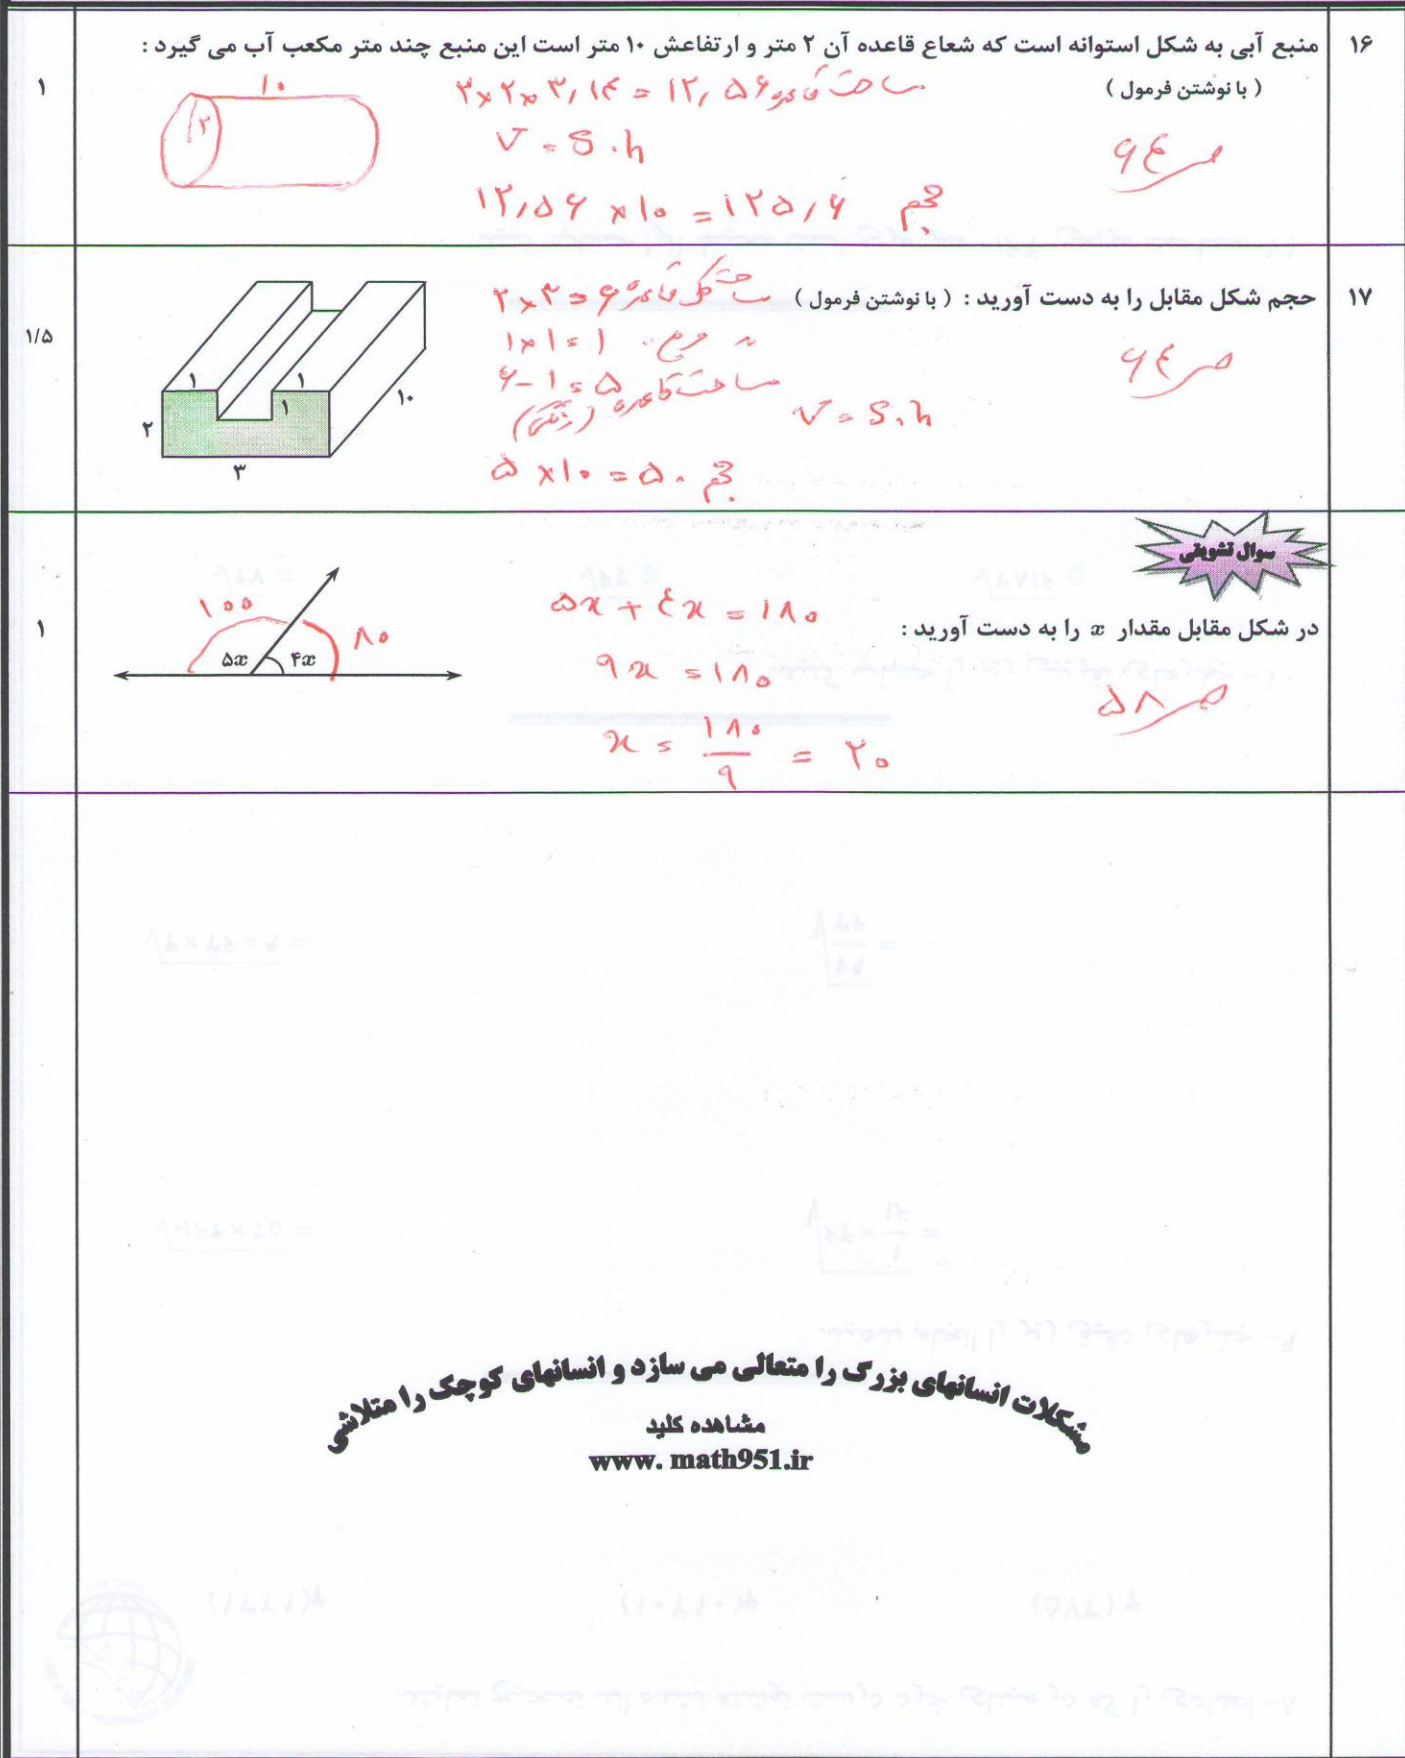 ۱۶ منبع آبی به شکل استوانه است که شعاع قاعده آن ۲ متر و ارتفاعش ۱۰ متر است این منبع چند متر مکعب آب می گیرد :
( با نوشتن فرمول )
۱
۱۰
۲
مساحت قاعده ۲×۲×۳٫۱۴ = ۱۲٫۵۶
V = S . h
۱۲٫۵۶ × ۱۰ = ۱۲۵٫۶ حجم
ص ۶۴
۱۷ حجم شکل مقابل را به دست آورید : ( با نوشتن فرمول )
۱/۵
مساحت کل قاعده ۲×۳=۶
مربع ۱×۱=۱
مساحت قاعده (رنگی) ۶-۱=۵
V = S . h
۵×۱۰=۵۰ حجم
ص ۶۴
۱ ۱
۱
۲
۱۰
۳
سوال تشویقی
در شکل مقابل مقدار x را به دست آورید :
۱
۱۰۰
۸۰
۵x ۴x
۵x + ۴x = ۱۸۰
۹x = ۱۸۰
x = ۱۸۰/۹ = ۲۰
ص ۵۸
مشکلات انسانهای بزرگ را متعالی می سازد و انسانهای کوچک را متلاشی
مشاهده کلید
www. math951.ir